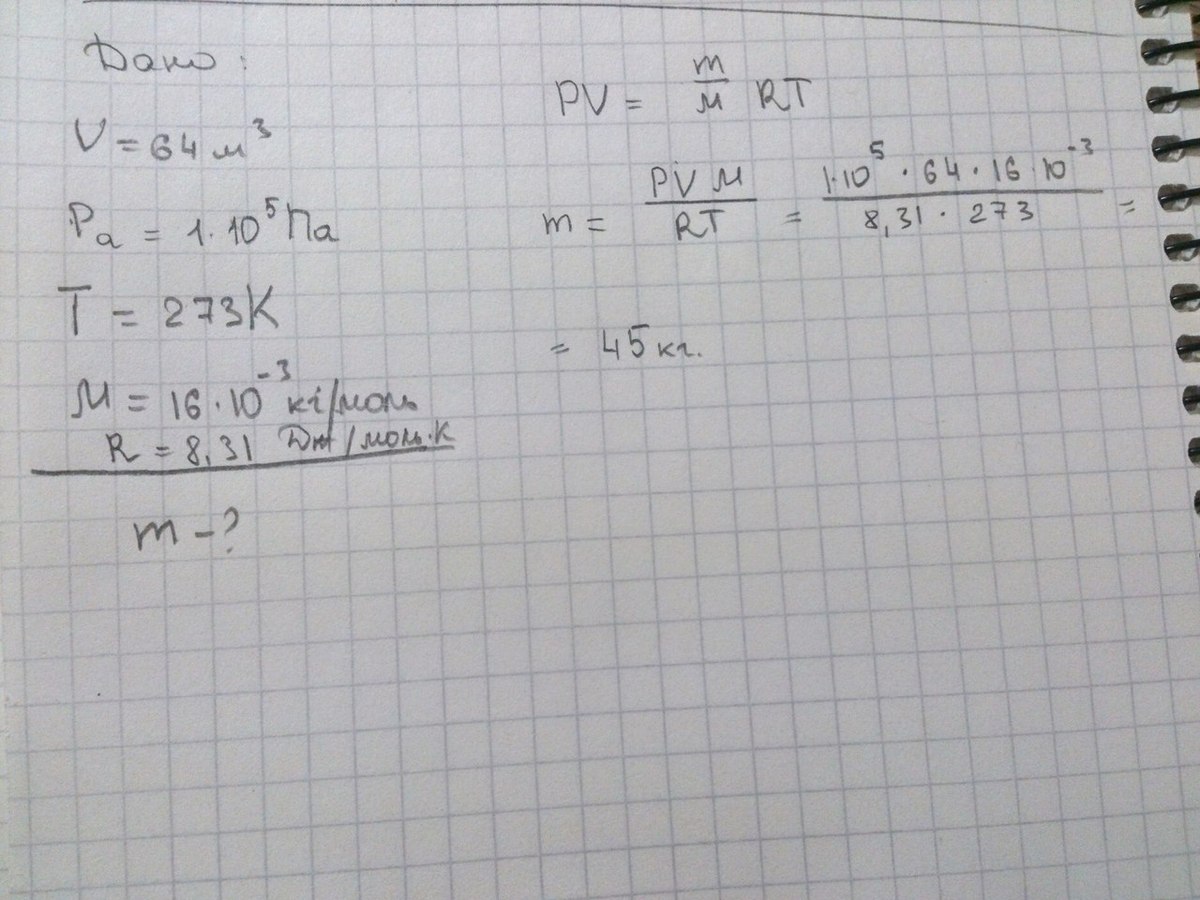 Дано:
V = 64 м³
Pₐ = 1·10⁵ Па
T = 273К
M = 16·10⁻³ кг/моль
R = 8,31 Дж/моль·К
m – ?
PV = m/M RT
m = PVM/RT = 1·10⁵·64·16·10⁻³/8,31·273 =
= 45 кг.